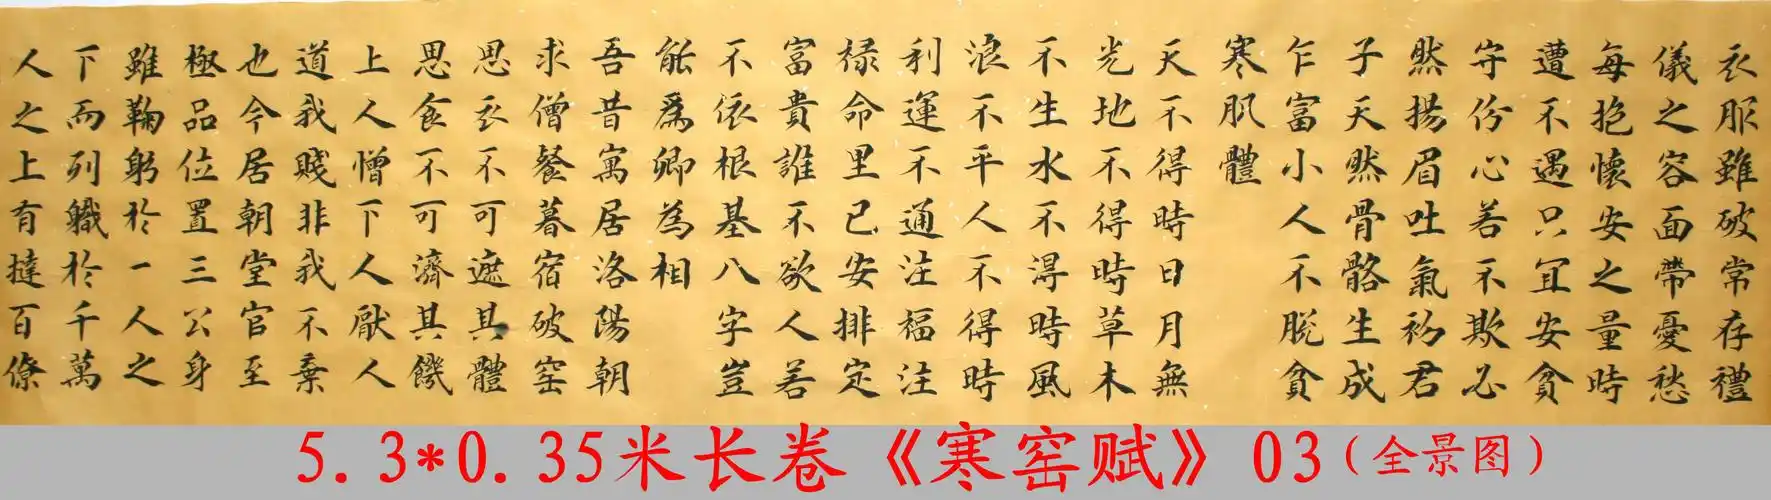 衣服雖破常存禮
儀之容面帶憂愁
每抱懷安之量時
遭不遇只宜安貧
守份心若不欺必
然揚眉吐氣初君
子天然骨骼生成
乍富小人不脱貧
寒肌體
天不得時日月無
光地不得時草木
不生水不得時風
浪不平人不得時
利運不通注福注
禄命里已安排定
富貴誰不欲人若
不依根基八字豈
能爲卿為相
吾昔寓居洛陽朝
求僧餐暮宿破窑
思衣不可遮其體
思食不可濟其饑
上人憎下人厭人
道我賤非我不棄
也今居朝堂官至
極品位置三公身
雖鞠躬於一人之
下而列職於千萬
人之上有撻百僚
5.3*0.35米长卷《寒窑赋》03(全景图)